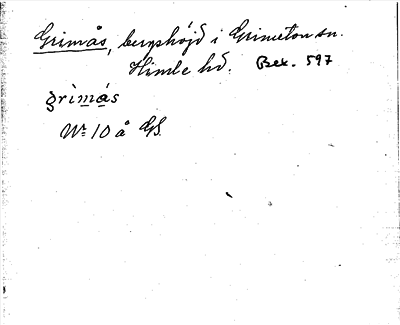 Grimås, bergshöjd i Grimeton sn.
Himle hd. Bex. 597
grìmás
Nr 10 å GS.